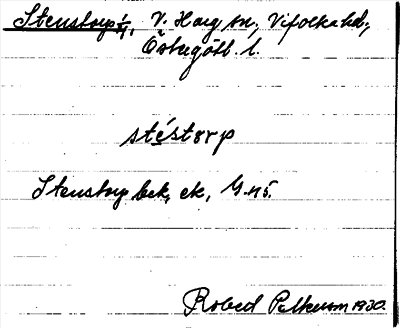 Stenstorp 1/1, V. Harg sn, Vifolka hd,
Östergötl. l.
stéstorp
Stenstorp bek, ek, G. 115.
Robert Pettersson 1930.